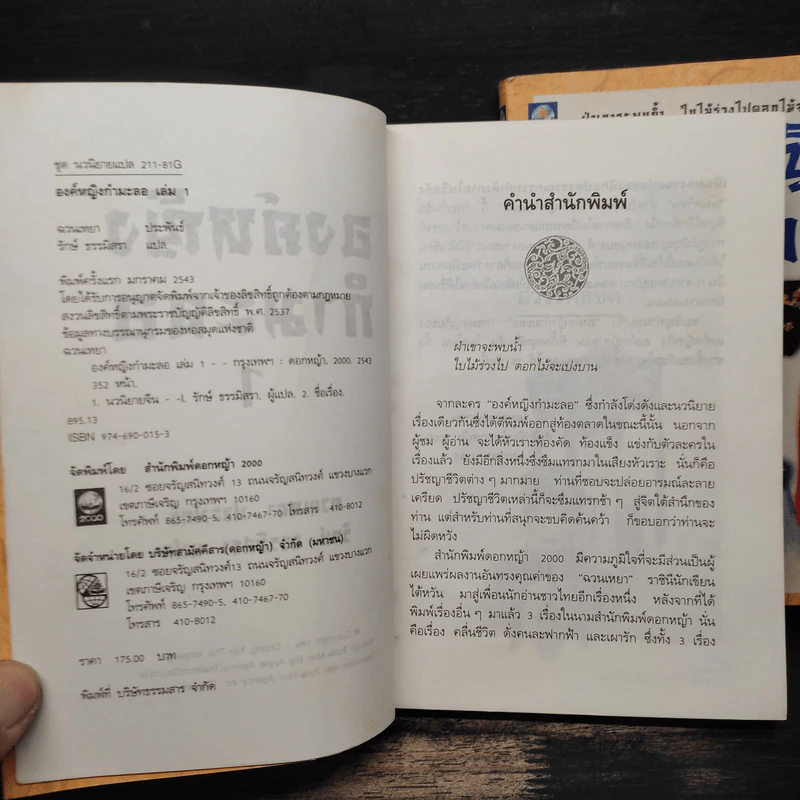 ชุด นวนิยายแปล 211-81G
องค์หญิงกำมะลอ เล่ม 1
ฉวนเหยา ประพันธ์
รักษ์ ธรรมิสรา แปล
พิมพ์ครั้งแรก มกราคม 2543
โดยได้รับการอนุญาตจัดพิมพ์จากเจ้าของลิขสิทธิ์ถูกต้องตามกฎหมาย
สงวนลิขสิทธิ์ตามพระราชบัญญัติลิขสิทธิ์ พ.ศ. 2537
ข้อมูลทางบรรณานุกรมของหอสมุดแห่งชาติ
ฉวนเหยา
องค์หญิงกำมะลอ เล่ม 1 - - กรุงเทพฯ : ดอกหญ้า, 2000, 2543
352 หน้า.
1. นวนิยายจีน - -I. รักษ์ ธรรมิสรา, ผู้แปล. 2. ชื่อเรื่อง.
895.13
ISBN 974-690-015-3
จัดพิมพ์โดย สำนักพิมพ์ดอกหญ้า 2000
16/2 ซอยจรัญสนิทวงศ์ 13 ถนนจรัญสนิทวงศ์ แขวงบางแวก
เขตภาษีเจริญ กรุงเทพฯ 10160
โทรศัพท์ 865-7490-5, 410-7467-70 โทรสาร 410-8012
2000
จัดจำหน่ายโดย บริษัทสามัคคีสาร(ดอกหญ้า) จำกัด (มหาชน)
16/2 ซอยจรัญสนิทวงศ์13 ถนนจรัญสนิทวงศ์ แขวงบางแวก
เขตภาษีเจริญ กรุงเทพฯ 10160
โทรศัพท์ 865-7490-5, 410-7467-70
โทรสาร 410-8012
ราคา 175.00 บาท
พิมพ์ที่ บริษัทธรรมสาร จำกัด
คำนำสำนักพิมพ์
ฝ่าเขาจะพบน้ำ
ใบไม้ร่วงไป ดอกไม้จะเบ่งบาน
จากละคร "องค์หญิงกำมะลอ" ซึ่งกำลังโด่งดังและนวนิยาย
เรื่องเดียวกันซึ่งได้ตีพิมพ์ออกสู่ท้องตลาดในขณะนี้นั้น นอกจาก
ผู้ชม ผู้อ่าน จะได้หัวเราะท้องคัด ท้องแข็ง แข่งกับตัวละครใน
เรื่องแล้ว ยังมีอีกสิ่งหนึ่งซึ่งซึมแทรกมาในเสียงหัวเราะ นั่นก็คือ
ปรัชญาชีวิตต่าง ๆ มากมาย ท่านที่ชอบจะปล่อยอารมณ์ละลาย
เครียด ปรัชญาชีวิตเหล่านี้ก็จะซึมแทรกช้า ๆ สู่จิตใต้สำนึกของ
ท่าน แต่สำหรับท่านที่สนุกจะขบคิดค้นคว้า ก็ขอบอกว่าท่านจะ
ไม่ผิดหวัง
สำนักพิมพ์ดอกหญ้า 2000 มีความภูมิใจที่จะมีส่วนเป็นผู้
เผยแพร่ผลงานอันทรงคุณค่าของ "ฉวนเหยา" ราชินีนักเขียน
ไต้หวัน มาสู่เพื่อนนักอ่านชาวไทยอีกเรื่องหนึ่ง หลังจากที่ได้
พิมพ์เรื่องอื่น ๆ มาแล้ว 3 เรื่องในนามสำนักพิมพ์ดอกหญ้า นั่น
คือเรื่อง คลื่นชีวิต ดั่งคนละฟากฟ้า และเผารัก ซึ่งทั้ง 3 เรื่อง